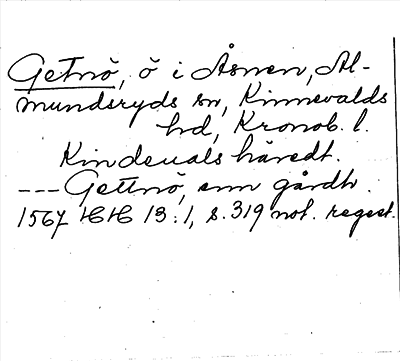 Getnö, ö i Åsnen, Al-
mundsryds sn, Kinnevalds
hd, Kronob. l.
Kindeuals häredt.
--- Gettnö, enn gårdh.
1567 HH 13:1, s. 319 not. regest.